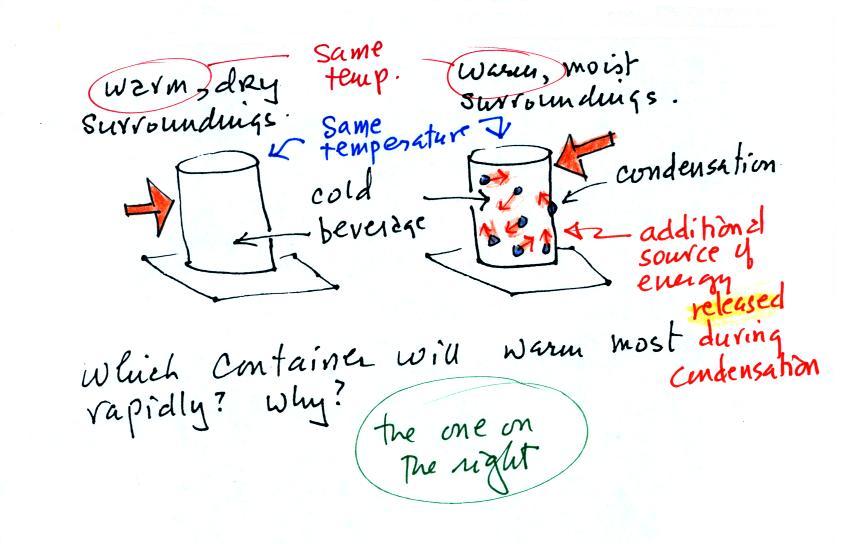 warm, dry
surroundings.
Same
temp.
warm, moist
surroundings.
Same
temperature
cold
beverage
condensation
additional
source of
energy
released
during
condensation
Which container will warm most
rapidly? Why?
the one on
The right